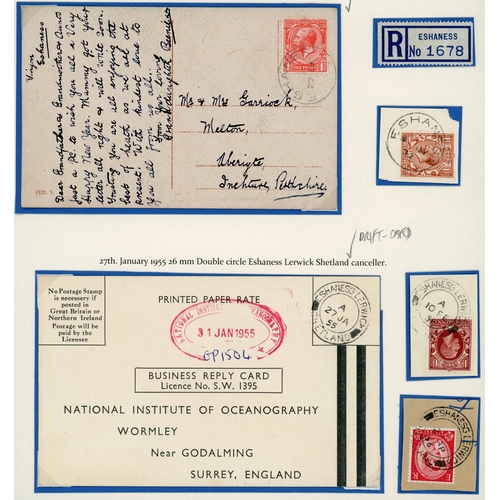 Virgin
Eshaness
Dear Grandfather & Grandmother & Aunts
just a P.C. to wish you all a Very
Happy New Year. Mammy got your
letter all right & will write soon.
trusting you are all enjoying the
best of health as we are at
present. With kindest love to
you all from us all.
Your loving
ONE PENNY
Mr & Mrs Garriock
Melton,
Inchture Perthshire
4333. 5.
ESHANESS
R No 1678
ESHANESS
DRIFT-CARD
27th. January 1955 26 mm Double circle Eshaness Lerwick Shetland canceller.
No Postage Stamp
is necessary if
posted in
Great Britain or
Northern Ireland
Postage will be
paid by the
Licensee
PRINTED PAPER RATE
NATIONAL INSTITUTE OF OCEANOGRAPHY
31 JAN 1955
GP1504
ESHANESS LERWICK
A
27 JA
55
SHETLAND
BUSINESS REPLY CARD
Licence No. S.W. 1395
NATIONAL INSTITUTE OF OCEANOGRAPHY
WORMLEY
Near GODALMING
SURREY, ENGLAND
ESHANESS LERWICK
A
10 FE
ESHANESS LERWICK